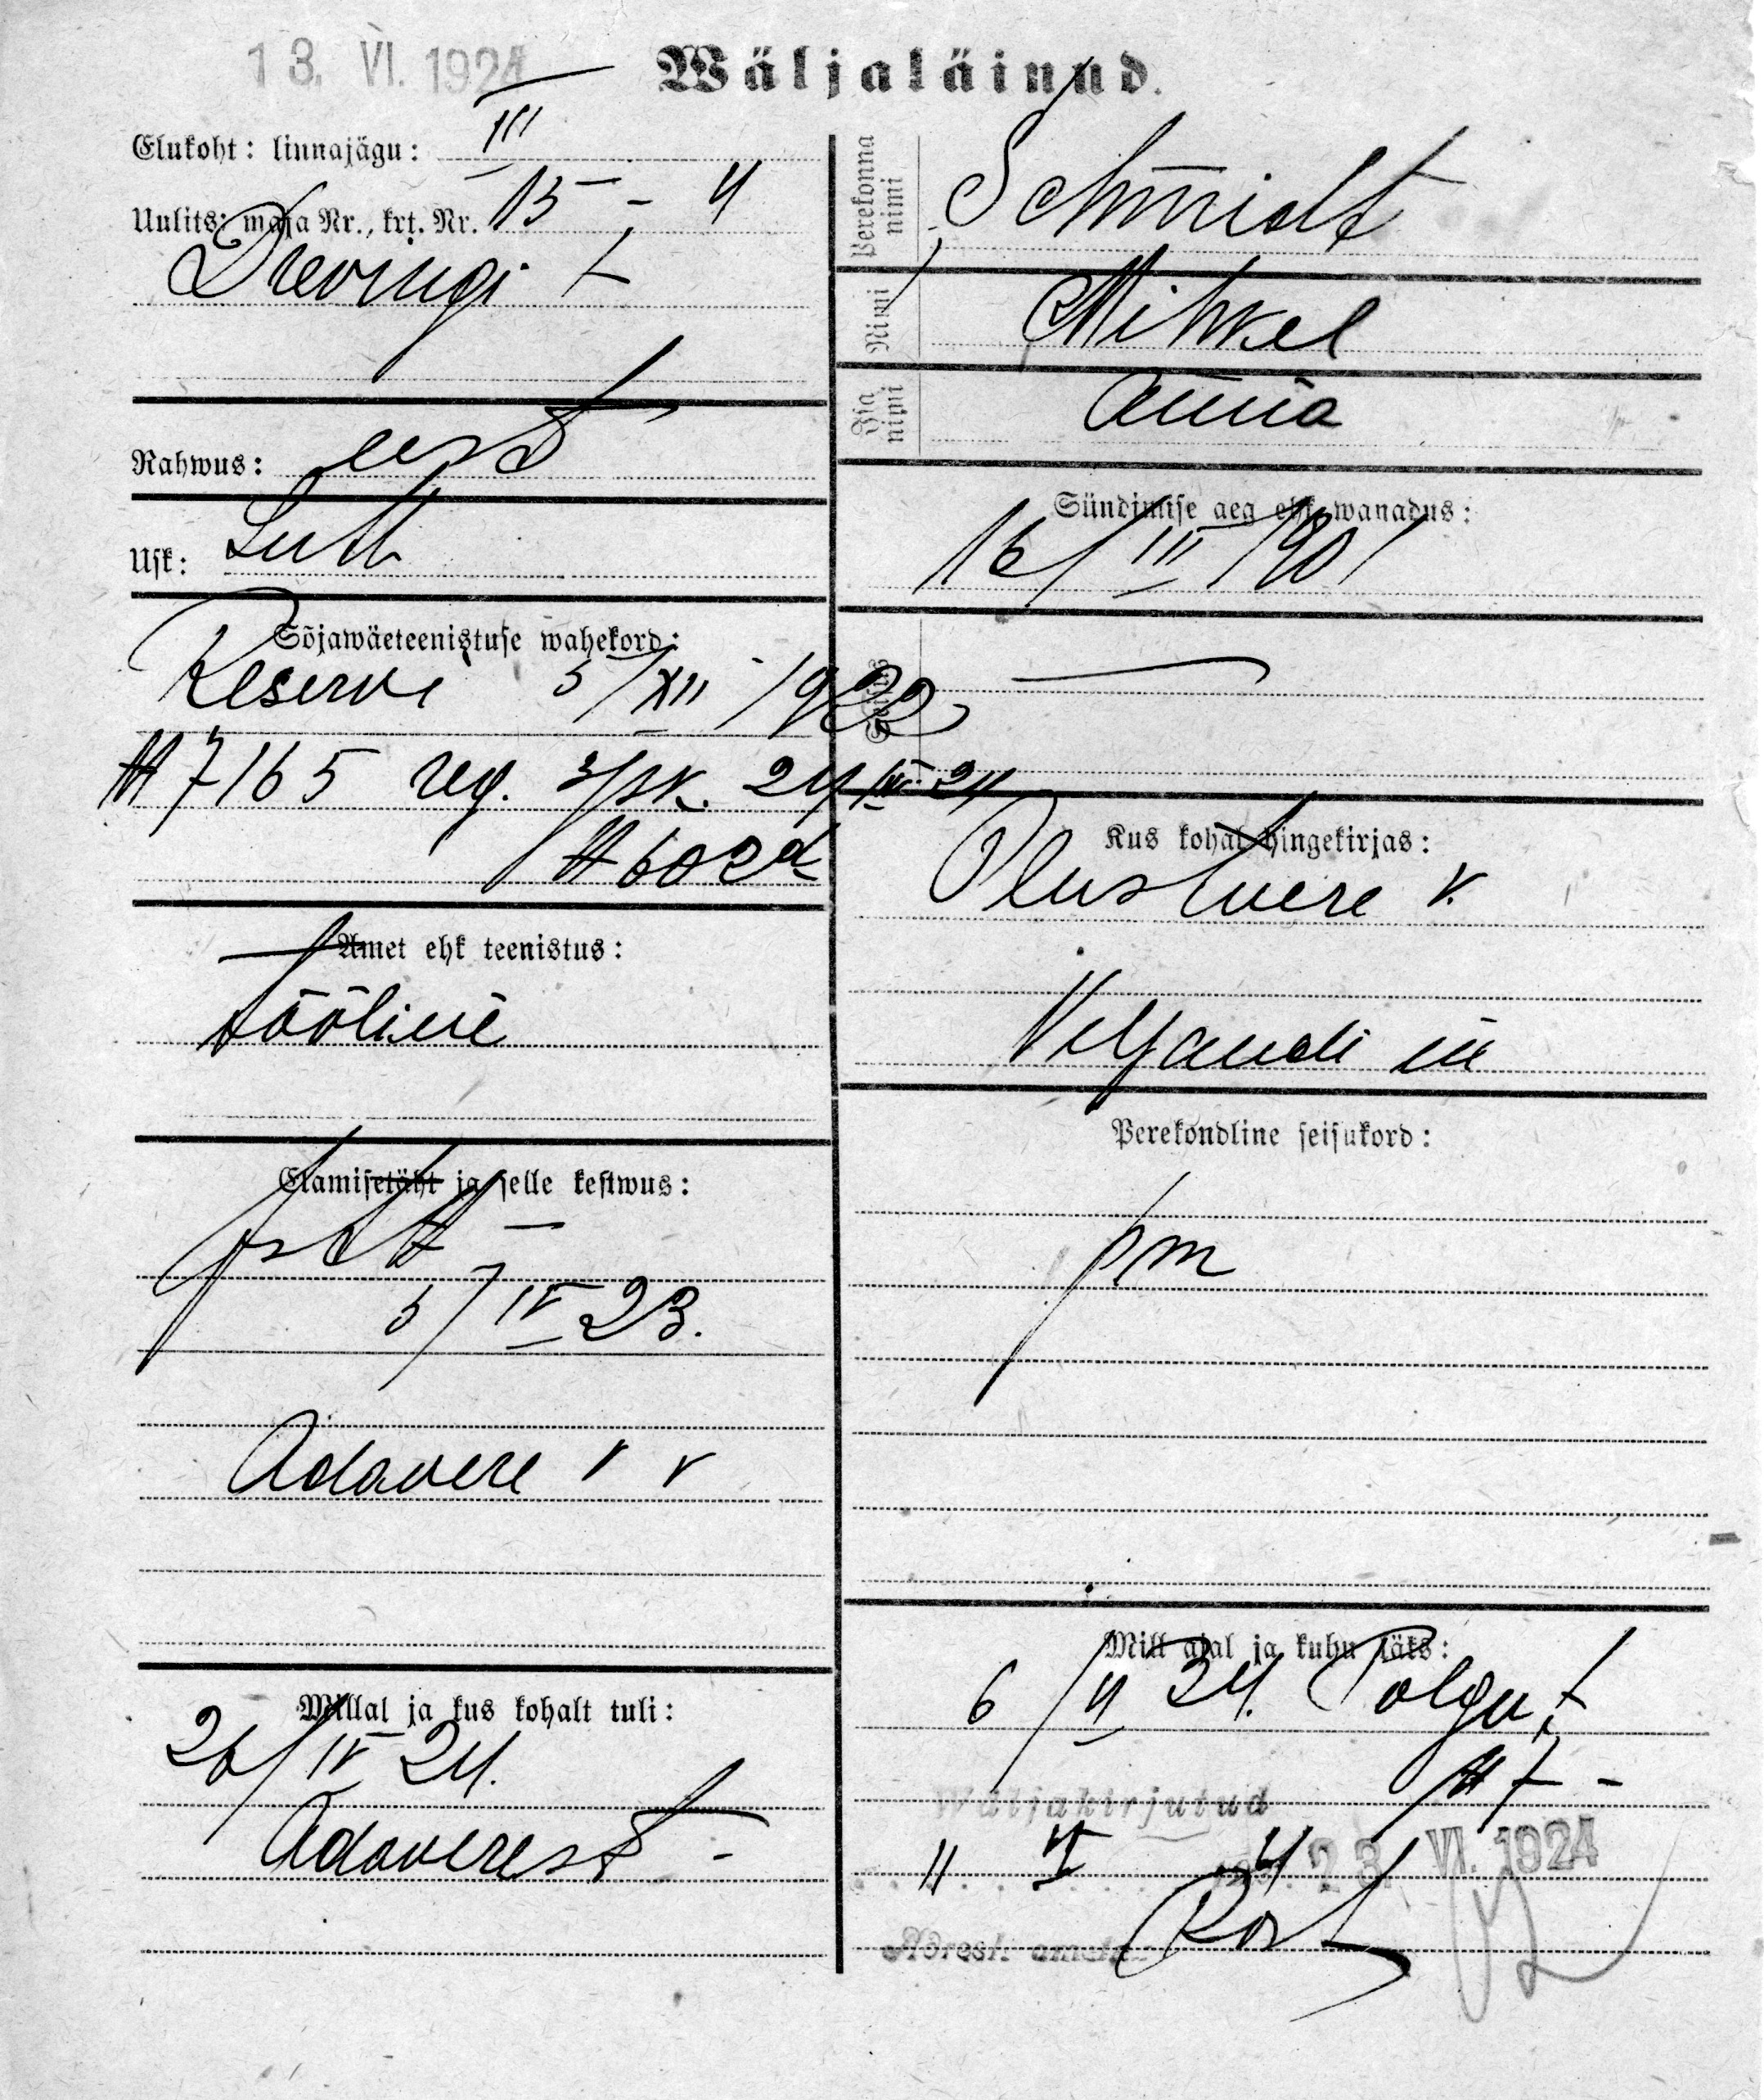 13. VI. 1924
Wäljaläinud.
Elukoht: linnajägu: III
Uulits; maja Nr., krt. Nr. 15 - 4
Rahwus: eest
Usk: Luth
Sõjawäeteenistuse wahekord:
Reservi 5/XII 1922
№ 7165 reg. 3/jsk. 24/IV 24
№ 602a
Amet ehk teenistus:
tööline
Elamisetäht ja selle kestwus:
5/IV 23.
Adavere v v
Millal ja kus kohalt tuli:
26/IV 24.
Adaverest -
Perekonna nimi
Schmidt
Nimi
Mihkel
Isa nimi
Anna
Sündimise aeg ehk wanadus:
16/III 1901
Kus kohal hingekirjas:
Olustvere v.
Viljandi m
Perekondline seisukord:
pm
Mill ajal ja kuhu läks:
6/VI 24. Polgu t
№ 7 -
Wäljakirjutud
11 VI 24 23 VI. 1924